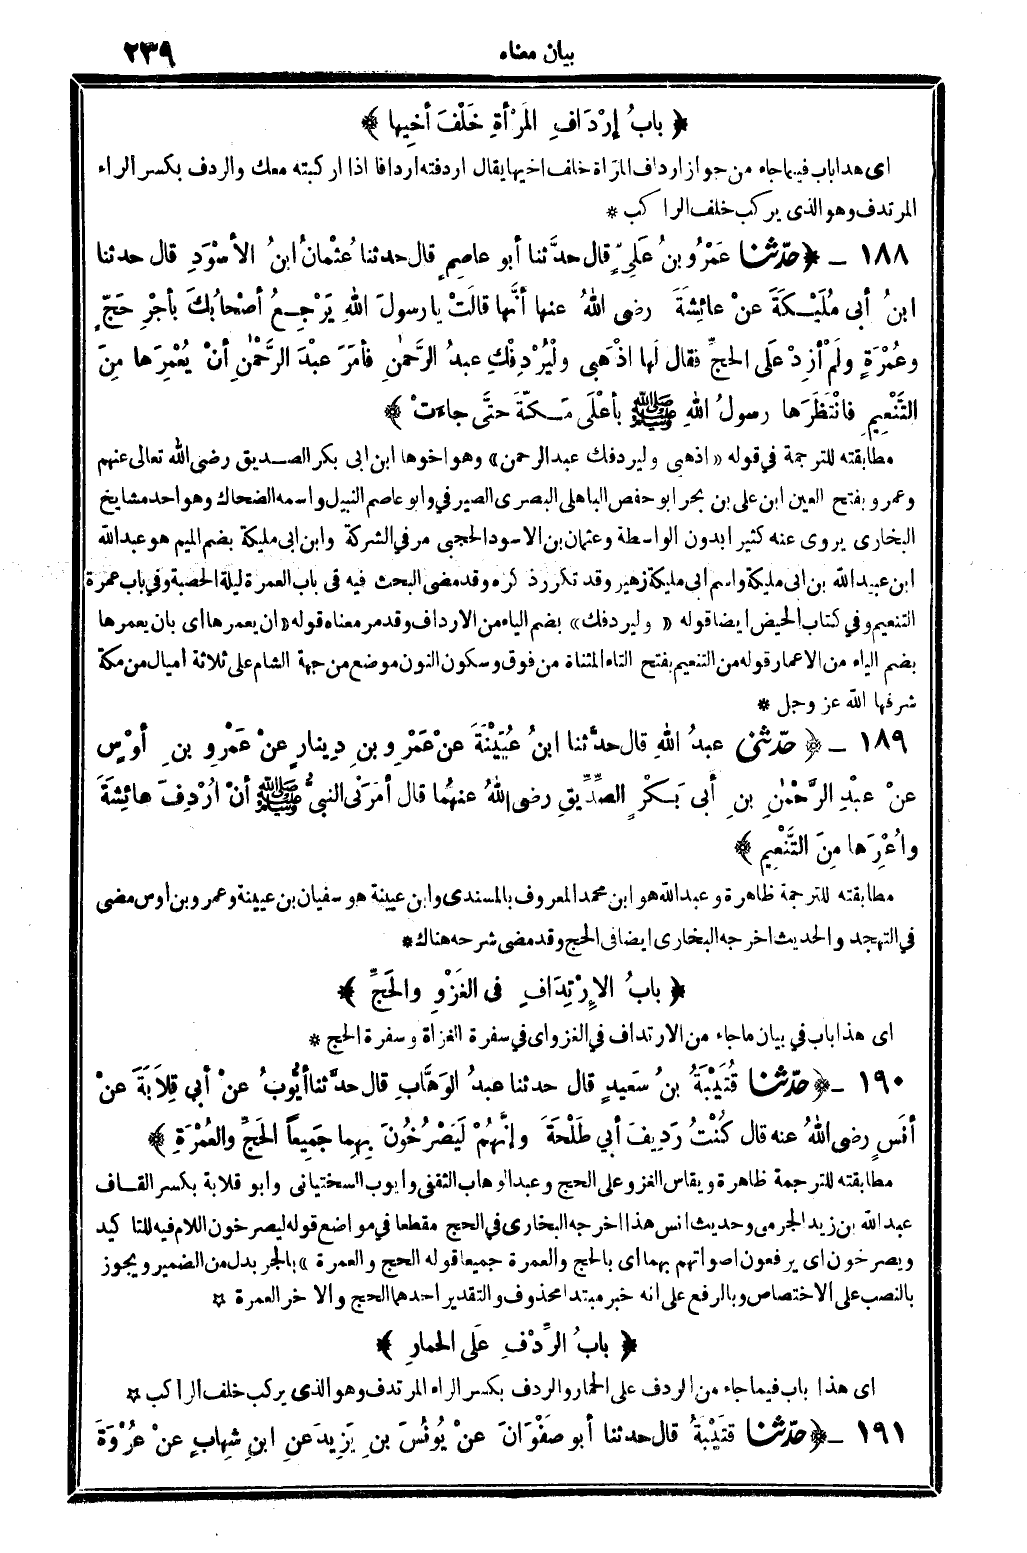 بيان معناه ٢٣٩
﴿ بابُ إرْدَافِ المَرْأةِ خَلْفَ أخِيها ﴾
اى هذا باب فيما جاء من جواز ارداف المرأة خلف اخيها يقال اردفته اردافا اذا اركبته معك والردف بكسر الراء
المرتدف وهو الذى يركب خلف الراكب *
١٨٨ ـ ﴿حدّثنا عَمْرُو بنُ عَلِيٍّ قال حدَّثنا أبو عاصِمٍ قال حدثنا عُثْمانُ ابنُ الأسْوَدِ قال حدثنا
ابنُ أبى مُلَيْـكَةَ عنْ عائِشَةَ رضى اللهُ عنها أنَّها قالَتْ يا رسولَ اللهِ يَرْجِـعُ أصْحابُكَ بأجْرِ حَجٍّ
وعُمْرَةٍ ولَمْ أزِدْ عَلَى الحَجِّ فقال لَها اذْهَبى ولْيُرْدِفْكِ عبدُ الرَّحمٰنِ فأمَرَ عبْدَ الرَّحْمٰنِ أنْ يُعْمِرَها مِنَ
التَّنْعِيمِ فانْتَظَرَها رسولُ اللهِ ﷺ بأعْلَى مَـكَّةَ حتَّى جاءَتْ ﴾
مطابقته للترجمة فى قوله «اذهبى وليردفك عبد الرحمن» وهو اخوها ابن ابى بكر الصـديق رضى الله تعالى عنهم
وعمرو بفتح العين ابن على بن بحر ابو حفص الباهلى البصرى الصيرفى وابو عاصم النبيل واسمه الضحاك وهو احد مشايخ
البخارى يروى عنه كثيرا بدون الواسطة وعثمان بن الاسود الحجبى مر فى الشركة وابن ابى مليكة بضم الميم هو عبد الله
ابن عبيد الله بن ابى مليكة واسم ابى مليكة زهير وقد تكرر ذكره وقد مضى البحث فيه فى باب العمرة ليلة الحصبة وفى باب عمرة
التنعيم وفى كتاب الحيض ايضا قوله «وليردفك» بضم الياء من الارداف وقد مر معناه قوله «ان يعمرها اى بان يعمرها
بضم الياء من الاعمار قوله من التنعيم بفتح التاء المثناة من فوق وسكون النون موضع من جهة الشام على ثلاثة اميال من مكة
شرفها الله عز وجل *
١٨٩ ـ ﴿حدّثنى عبدُ اللهِ قال حدَّثنا ابنُ عُيَيْنَةَ عنْ عَمْرِو بنِ دِينارٍ عنْ عَمْرِو بنِ أوْسٍ
عنْ عبْدِ الرَّحْمٰنِ بنِ أبى بَـكْرٍ الصِّدِّيقِ رضى اللهُ عنهُما قال أمَرَنى النبىُّ ﷺ أنْ أُرْدِفَ عائِشَةَ
وأُعْمِرَها مِنَ التَّنْعِيمِ ﴾
مطابقته للترجمة ظاهرة وعبد الله هو ابن محمد المعروف بالمسندى وابن عيينة هو سفيان بن عيينة وعمرو بن اوس مضى
فى التهجد والحديث اخرجه البخارى ايضا فى الحج وقد مضى شرحه هناك *
﴿ بابُ الإِرْتِدَافِ فى الغَزْوِ والحَجِّ ﴾
اى هذا باب فى بيان ما جاء من الارتداف فى الغزو اى فى سفرة الغزاة وسفرة الحج *
١٩٠ ـ ﴿حدّثنا قُتَيْبَةُ بنُ سَعِيدٍ قال حدثنا عبدُ الوَهَّابِ قال حدَّثنا أيُّوبُ عنْ أبي قِلاَبَةَ عنْ
أنَسٍ رضى اللهُ عنه قال كُنْتُ رَدِيفَ أبي طَلْحَةَ وإنَّهُمْ لَيَصْرُخُونَ بِهِما جَمِيعاً الحَجِّ والعُمْرَةِ ﴾
مطابقته للترجمة ظاهرة ويقاس الغزو على الحج وعبد الوهاب الثقفى وايوب السختيانى وابو قلابة بكسر القـاف
عبد الله بن زيد الجرمى وحديث انس هذا اخرجه البخارى فى الحج مقطعا فى مواضع قوله ليصرخون اللام فيه للتاكيد
ويصرخون اى يرفعون اصواتهم بهما اى بالحج والعمرة جميعا قوله الحج والعمرة» بالجر بدل من الضمير ويجوز
بالنصب على الاختصاص وبالرفع على انه خبر مبتدا محذوف والتقدير احدهما الحج والاخر العمرة *
﴿ بابُ الرِّدْفِ عَلَى الحمارِ ﴾
اى هذا باب فيما جاء من الردف على الحمار والردف بكسر الراء المرتدف وهو الذى يركب خلف الراكب *
١٩١ ـ ﴿حدّثنا قتَيْبَةُ قال حدثنا أبو صَفْوَانَ عنْ يُونُسَ بنِ يَزِيدَ عنِ ابنِ شِهابٍ عنْ عُرْوَةَ